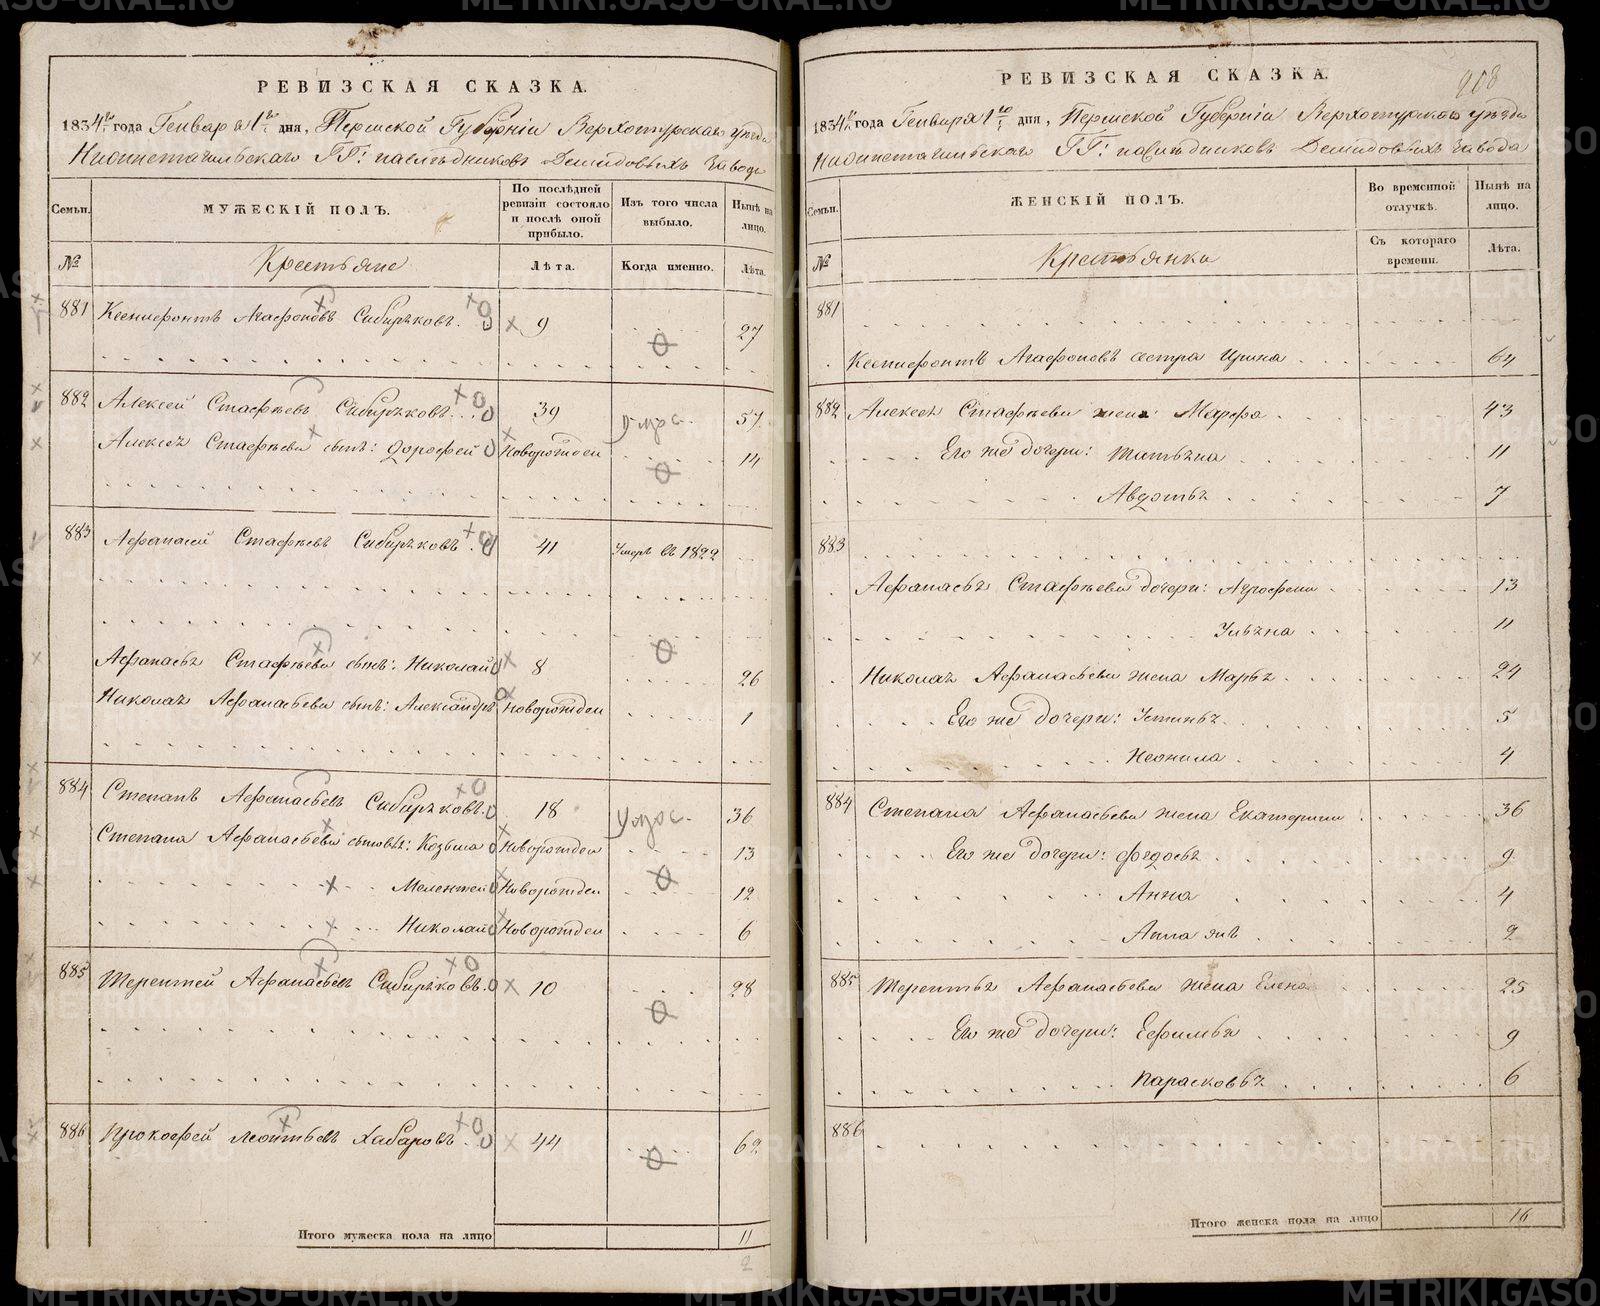 РЕВИЗСКАЯ СКАЗКА.
1834го года Генваря 1го дня, Пермской Губерніи Верхотурскаго уѣзда
Нижнетагильскаго ГГ: наслѣдниковъ Демидовыхъ завода
Семьи.
МУЖЕСКІЙ ПОЛЪ.
По послѣдней ревизіи состояло и послѣ оной прибыло.
Изъ того числа выбыло.
Нынѣ на лицо.
№
Крестьяне
Лѣта.
Когда именно.
Лѣта.
881 Ксенофонтъ Агафоновъ Сибиряковъ. 9 27
882 Алексей Стафѣевъ Сибиряковъ. 39 умре. 57
Алексея Стафѣева сынъ: Дорофей Новорожден 14
883 Афанасей Стафѣевъ Сибиряковъ. 41 Умеръ въ 1822
Афанасья Стафѣева сынъ: Николай 8 26
Николая Афанасьева сынъ: Александръ Новорожден 1
884 Степанъ Афанасьевъ Сибиряковъ. 18 36
Степана Афанасьева сыновья: Козьма Новорожден 13
Мелентей Новорожден 12
Николай Новорожден 6
885 Терентей Афанасьевъ Сибиряковъ. 10 28
886 Прокофей Леонтьевъ Хабаровъ. 44 62
Итого мужеска пола на лицо 11
2
РЕВИЗСКАЯ СКАЗКА.
1834го года Генваря 1го дня, Пермской Губерніи Верхотурскаго уѣзда
Нижнетагильскаго ГГ: наслѣдниковъ Демидовыхъ завода
Семьи.
ЖЕНСКІЙ ПОЛЪ.
Во временной отлучкѣ.
Нынѣ на лицо.
№
Крестьянки
Съ котораго времени.
Лѣта.
881
Ксенофонта Агафонова сестра Ирина 64
882 Алексея Стафѣева жена: Марфа 43
Его же дочери: Татьяна 11
Авдотья 7
883
Афанасья Стафѣева дочери: Агрофена 13
Ульяна 11
Николая Афанасьева жена Марья 24
Его же дочери: Устинья 5
Неонила 4
884 Степана Афанасьева жена Екатерина 36
Его же дочери: Федосья 9
Анна 4
Анна же 2
885 Терентья Афанасьева жена Елена 25
Его же дочери: Ефимья 9
Парасковья 6
886
Итого женска пола на лицо 16
METRIKI.GASO-URAL.RU